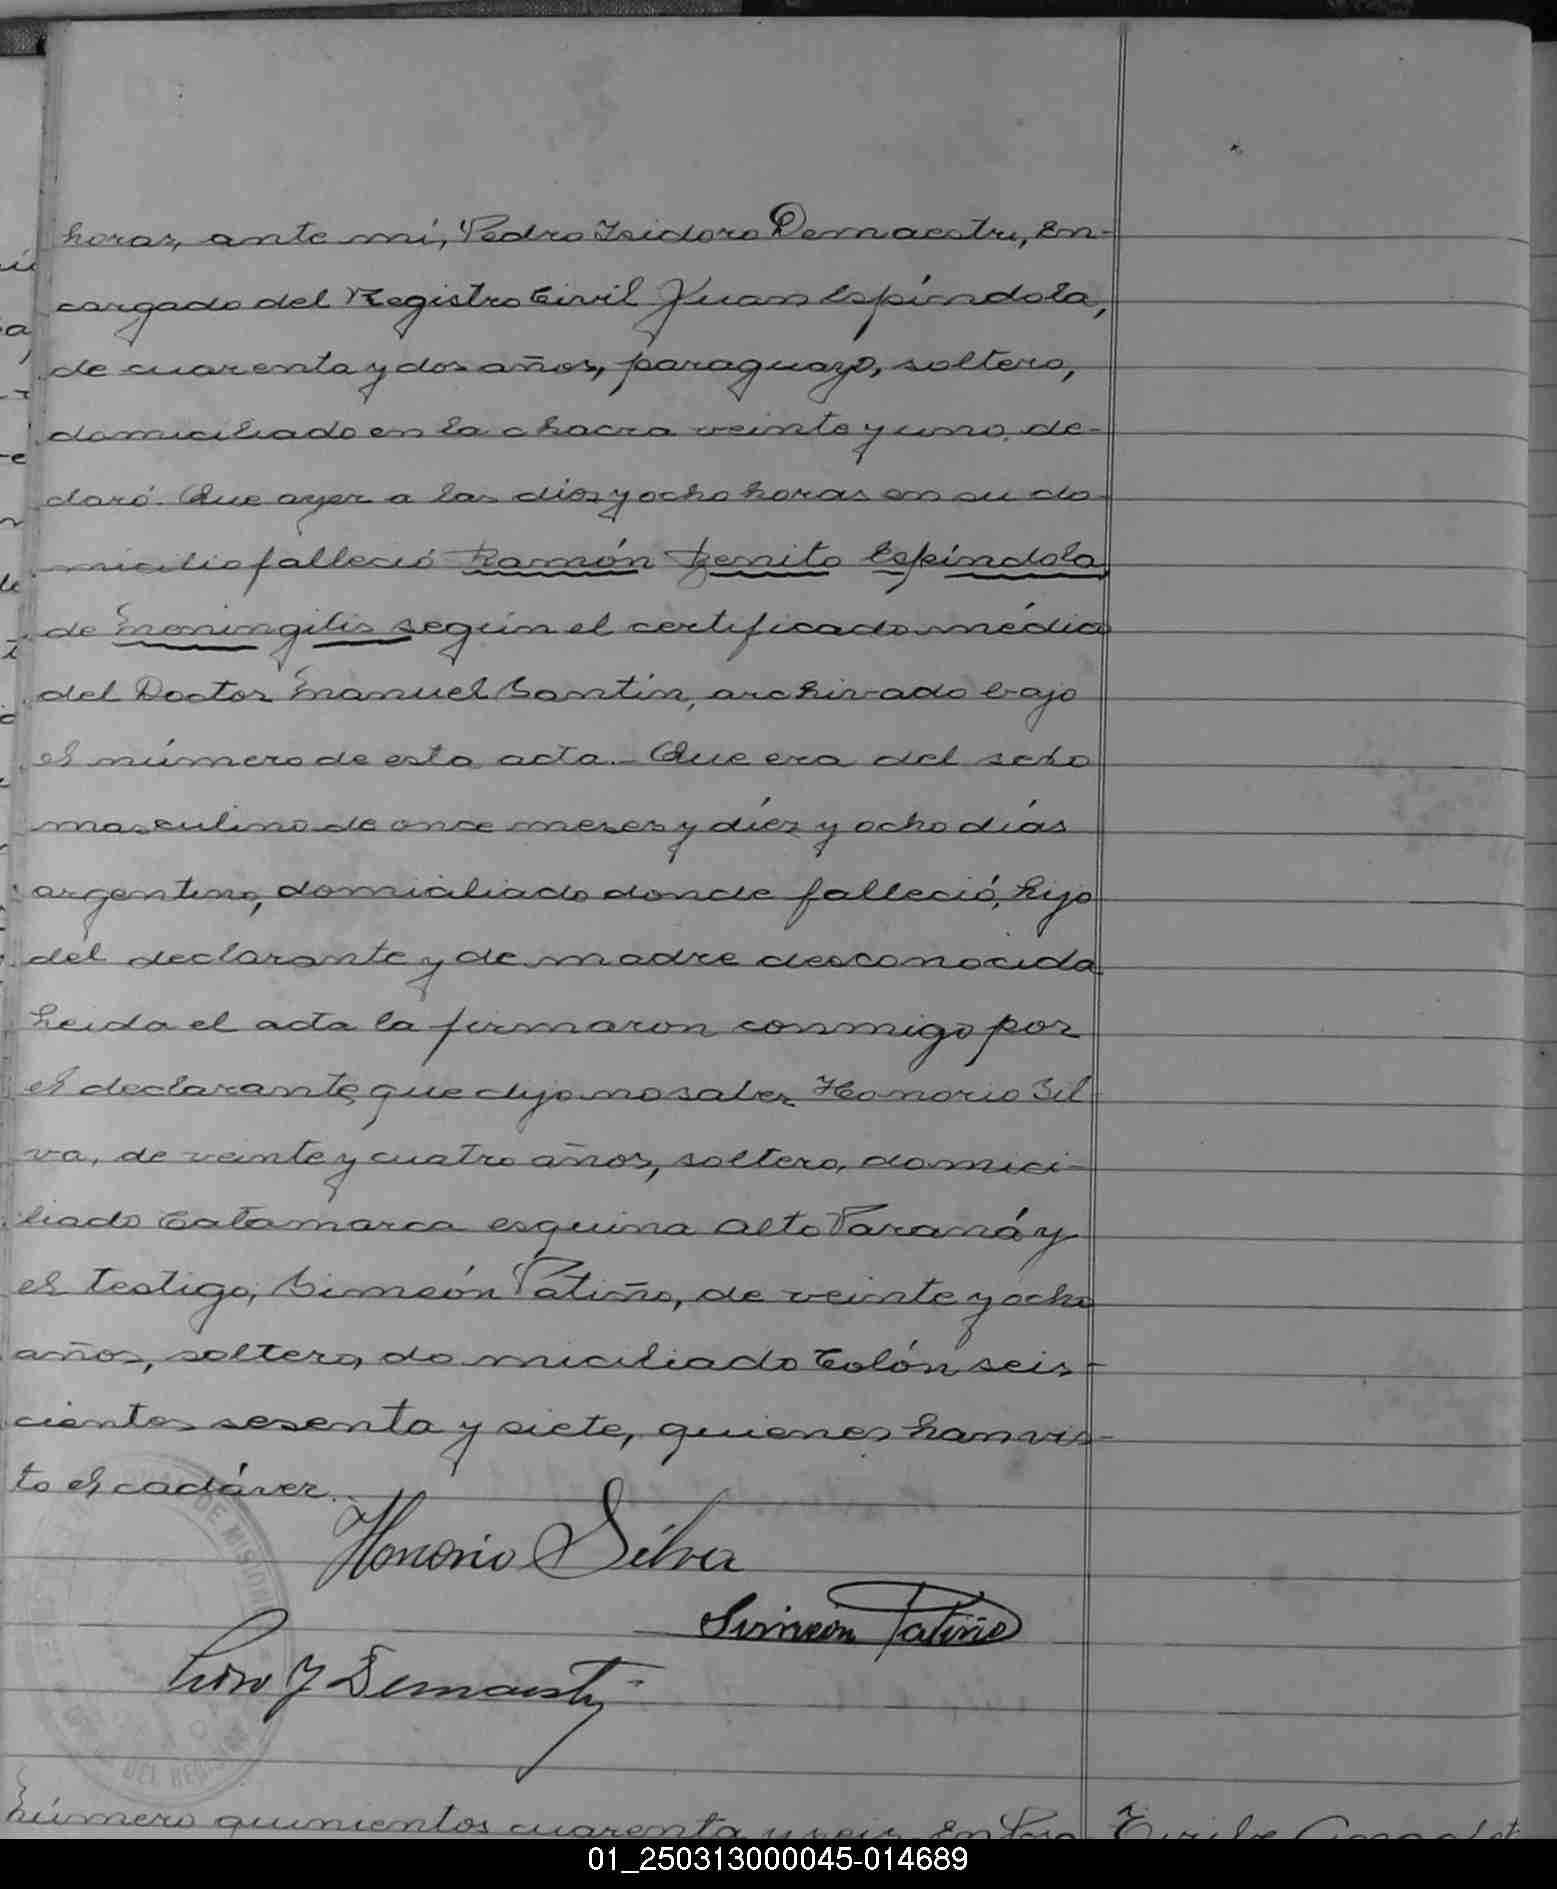 horas, ante mí, Pedro Isidoro Demaestri, En-
cargado del Registro Civil Juan Espíndola,
de cuarenta y dos años, paraguayo, soltero,
domiciliado en la chacra veinte y uno, de-
claró: Que ayer a las diez y ocho horas en su do-
micilio falleció Ramón Benito Espíndola
de Meningitis según el certificado médico
del Doctor Manuel Santín, archivado bajo
el número de esta acta.- Que era del sexo
masculino de once meses y diez y ocho días
argentino, domiciliado donde falleció, hijo
del declarante y de madre desconocida
Leida el acta la firmaron conmigo por
el declarante, que dijo no saber Honorio Sil-
va, de veinte y cuatro años, soltero, domici-
liado Catamarca esquina Alto Paraná y
el testigo, Simeón Patiño, de veinte y ocho
años, soltero, domiciliado Colón seis-
cientos sesenta y siete, quienes han vis-
to el cadáver.
Honorio Silva
Simeon Patiño
Pedro I Demaestri
DE MISIONES
DEL REGISTRO
Número quinientos cuarenta y seis. En
01_250313000045-014689